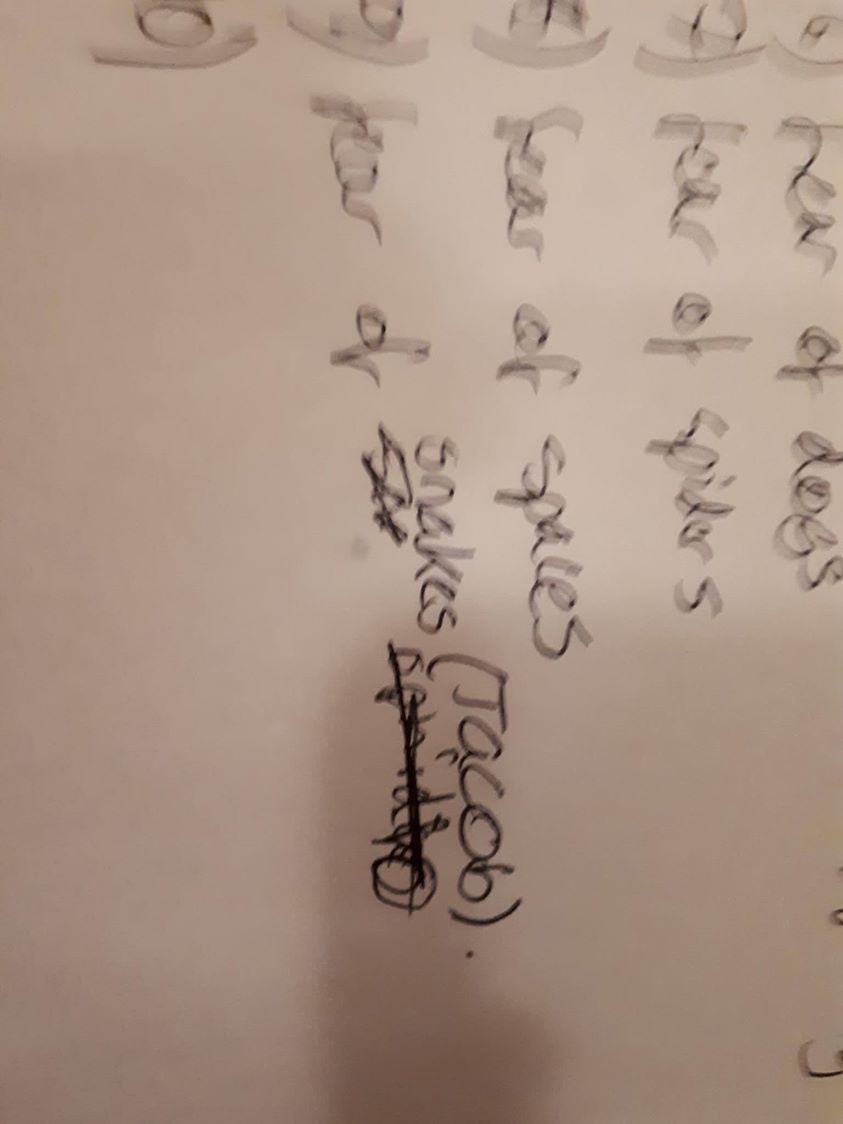 6) fear of dogs
7) fear of spiders
8) fear of spaces
9) fear of snakes (Jacob).
10)